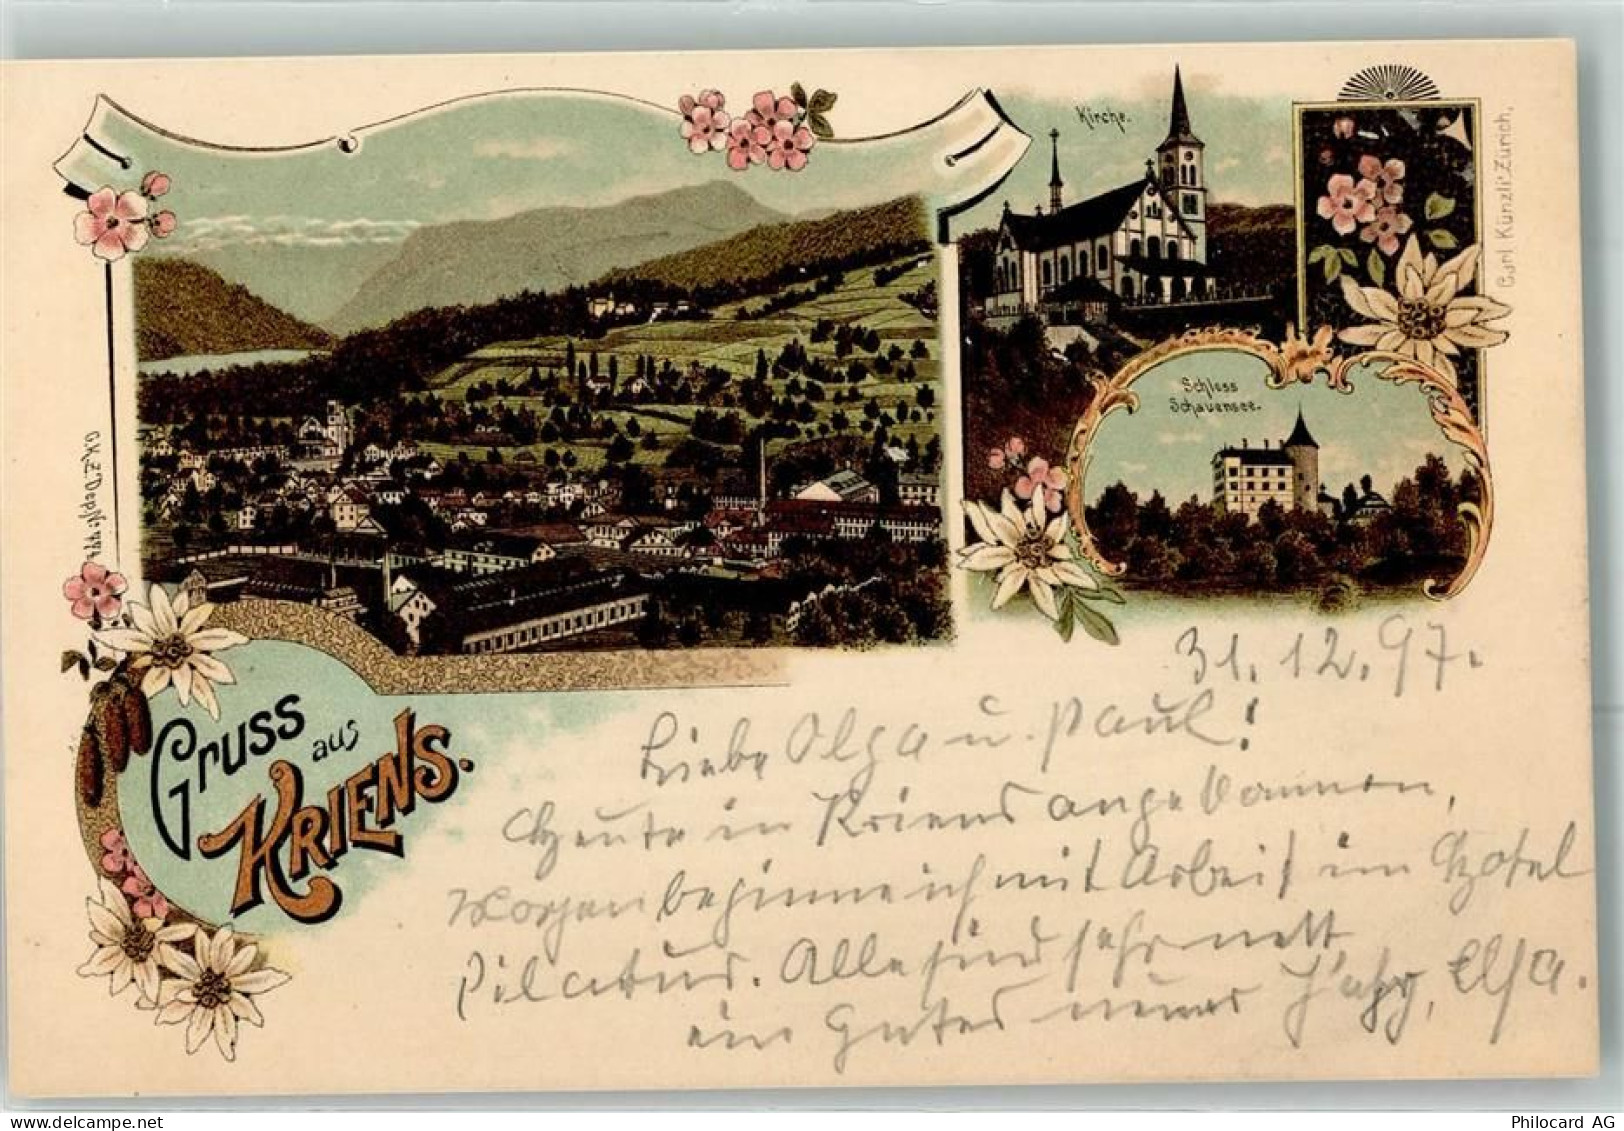 Kirche.
Schloss
Schauensee.
Carl Künzli, Zürich.
C.K.Z. Dep. №
Gruss
aus
KRIENS.
31. 12. 97.
Liebe Olga u. Paul!
Heute in Kriens angekommen,
Morgen beginne ich mit Arbeit im Hotel
Pilatus. Alle sind sehr nett
ein gutes neues Jahr, Elsa.
Philocard AG